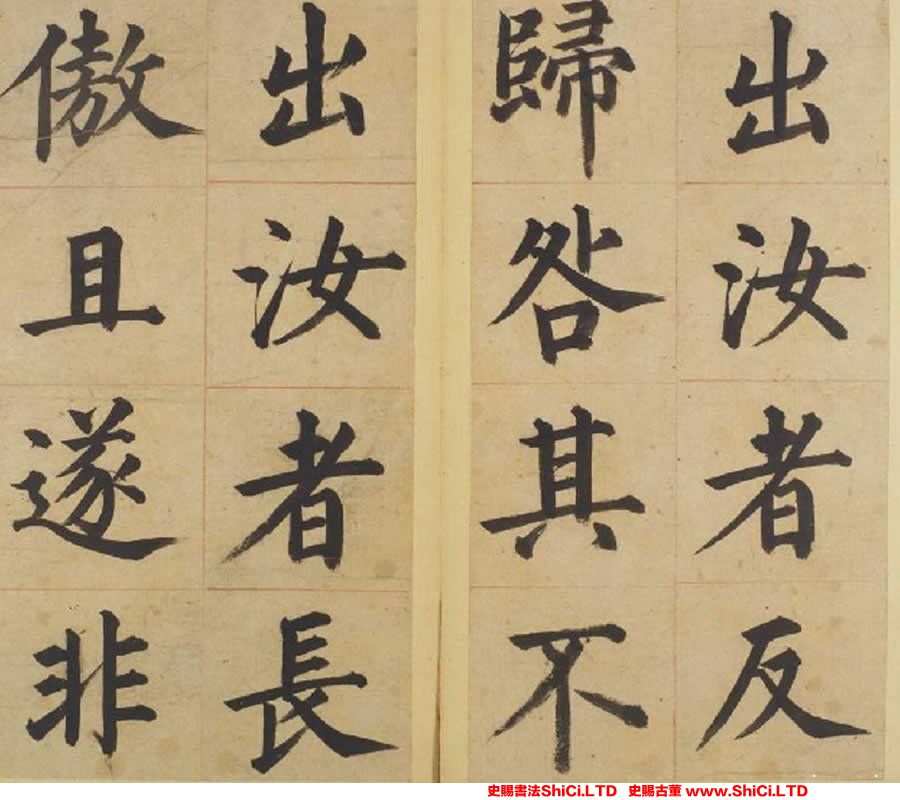 出汝者反
歸咎其不
出汝者長
傲且遂非
史賜書法ShiCi.LTD 史賜古董 www.ShiCi.LTD